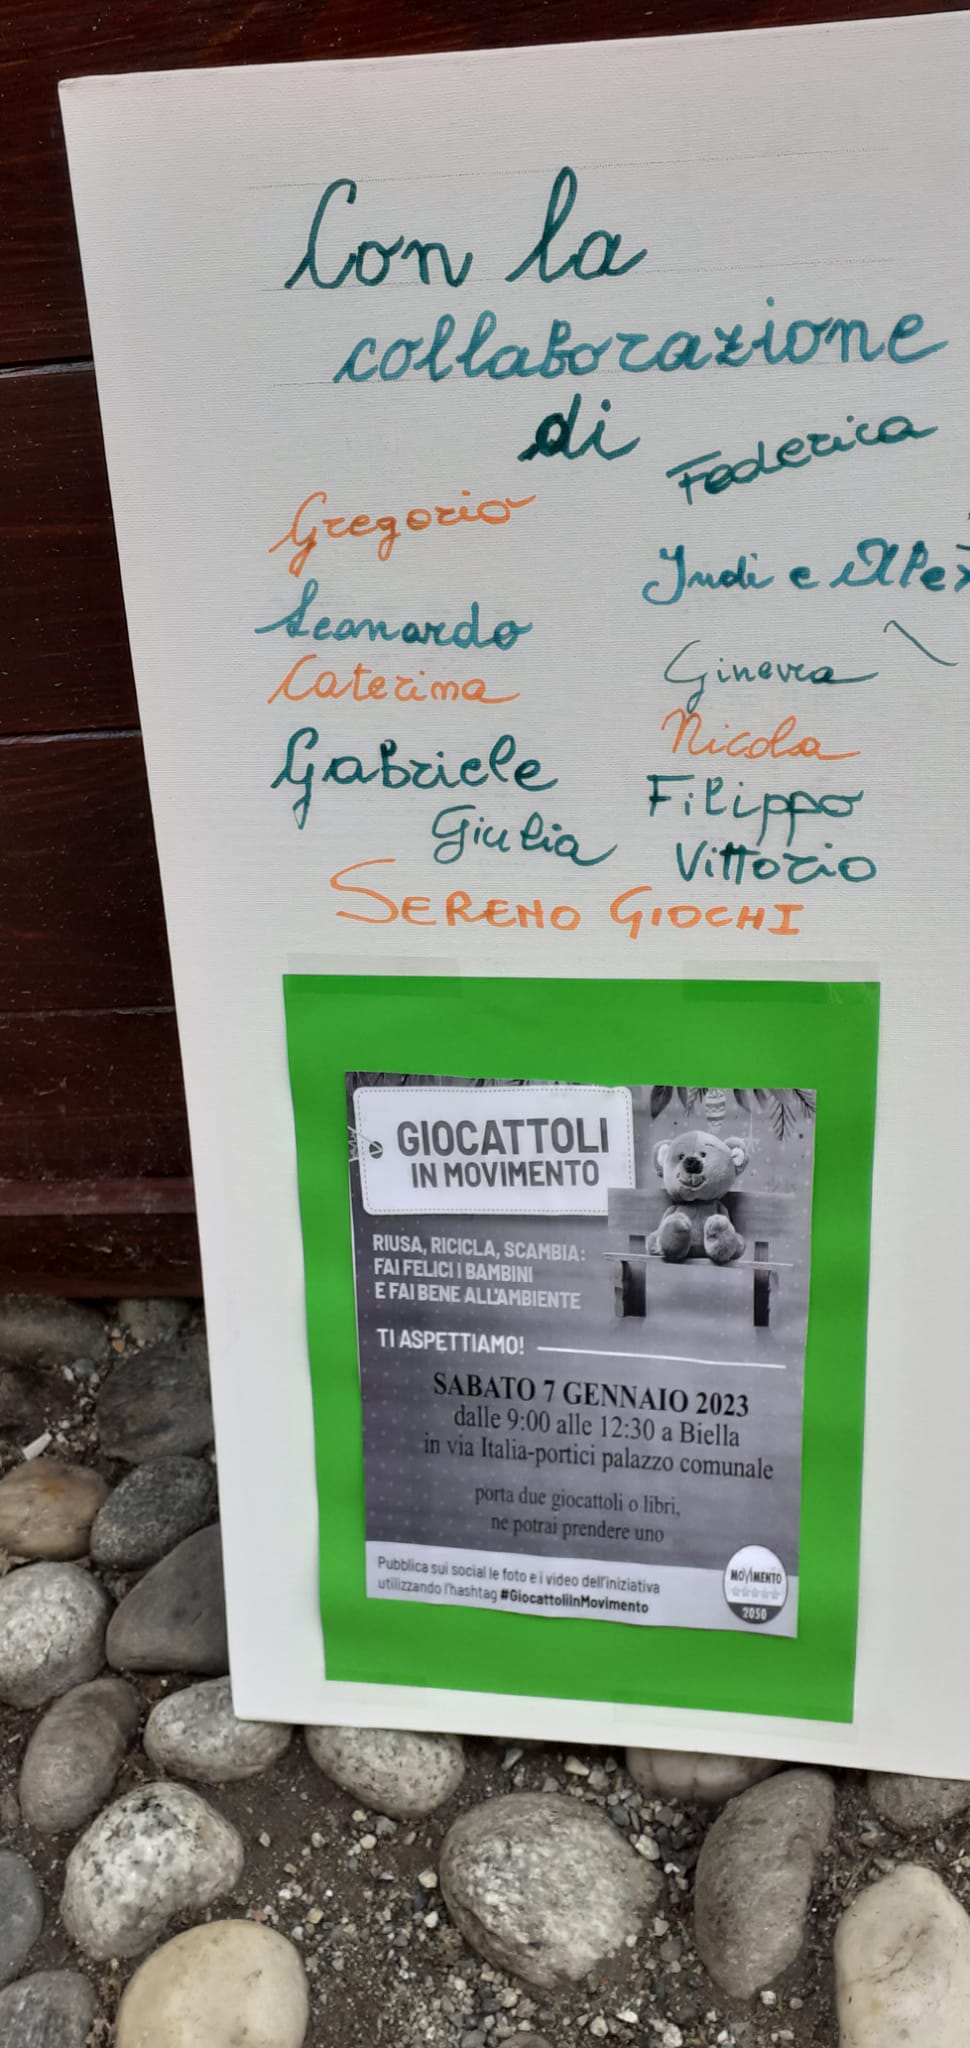 Con la
collaborazione
di
Federica
Gregorio
Judi e
Leonardo
Ginevra
Caterina
Nicola
Gabriele
Filippo
Giulia
Vittorio
SERENO GIOCHI
GIOCATTOLI
IN MOVIMENTO
RIUSA, RICICLA, SCAMBIA:
FAI FELICI I BAMBINI
E FAI BENE ALL'AMBIENTE
TI ASPETTIAMO!
SABATO 7 GENNAIO 2023
dalle 9:00 alle 12:30 a Biella
in via Italia-portici palazzo comunale
porta due giocattoli o libri,
ne potrai prendere uno
Pubblica sui social le foto e i video dell'iniziativa
utilizzando l'hashtag #GiocattoliInMovimento
MOVIMENTO
2050